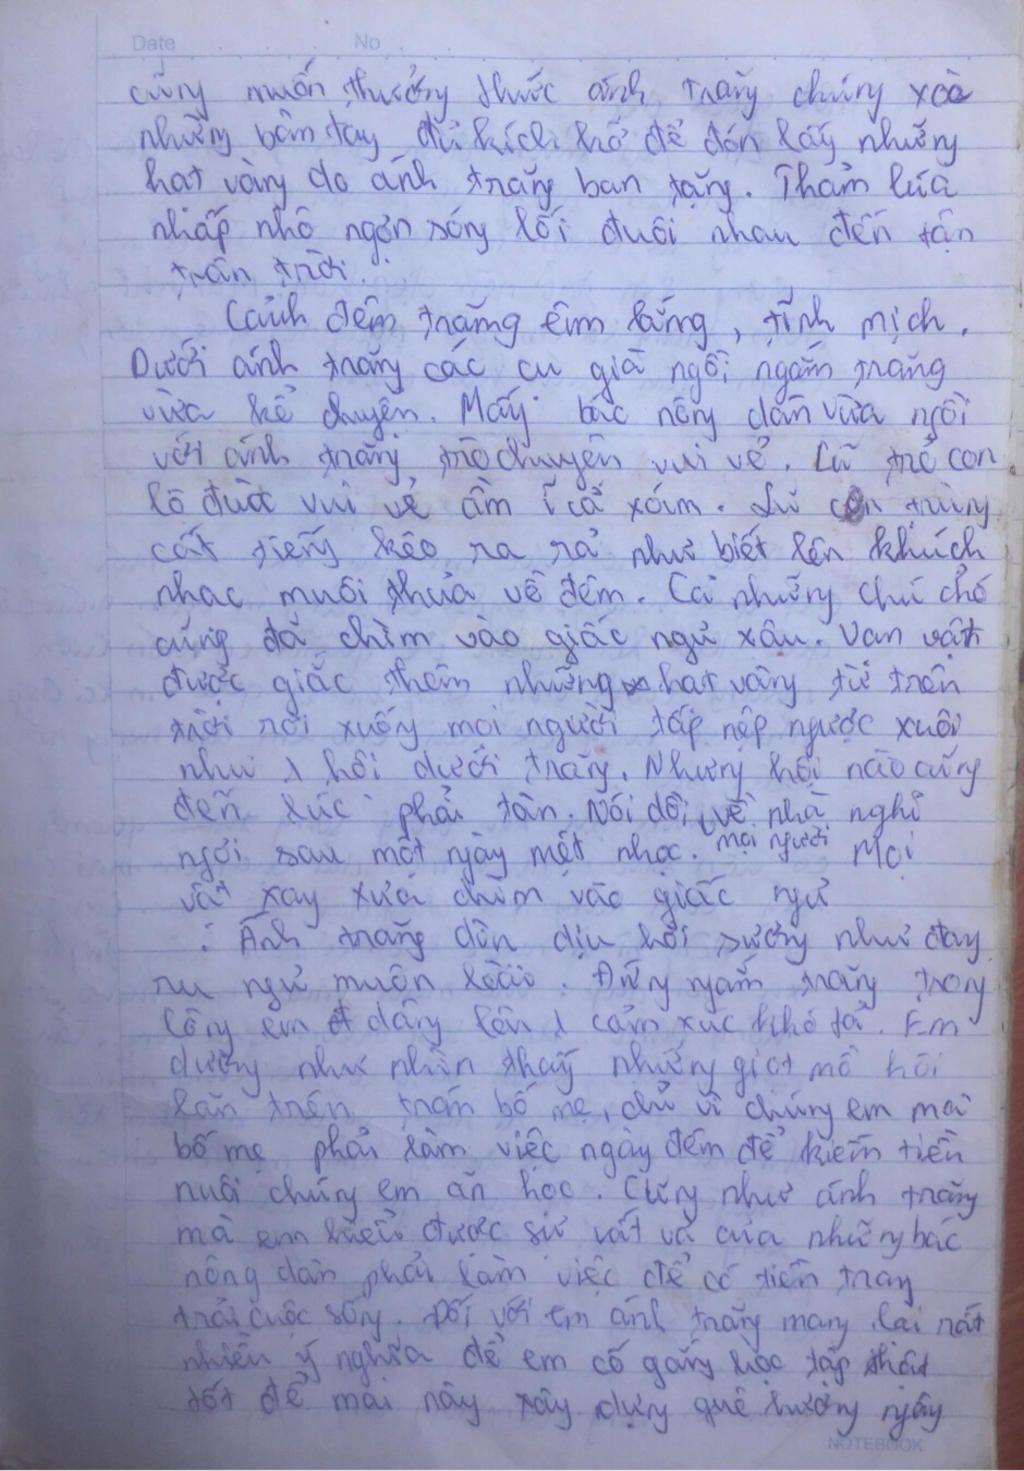 Date No
cũng muốn thưởng thức ánh trăng chúng xòe
những bàn tay đủ kích khổ để đón lấy những
hạt vàng do ánh trăng ban tặng. Thảm lúa
nhấp nhô ngọn sóng lối đuôi nhau đến tận
trân trời.
Cảnh đêm trăng êm lắng, tĩnh mịch.
Dưới ánh trăng các cụ già ngồi ngắm trăng
vừa kể chuyện. Mấy bác nông dân vừa ngồi
với ánh trăng trò chuyện vui vẻ. Lũ trẻ con
lô đùa vui vẻ ầm ĩ cả xóm. Lũ côn trùng
cất tiếng kêo ra rả như biết lên khúch
nhac muôi thuả về đêm. Cả những chú chó
cũng đã chìm vào giấc ngủ xâu. Van vật
được giấc thêm những hat vàng từ trên
trời rơi xuống mọi người tấp nập ngược xuôi
như 1 hội dưới trăng. Nhưng hội nào cũng
đến lúc phải tàn. Nói dồi, về nhà nghỉ
ngơi sau một ngày mệt nhọc. mọi người Mọi
vật xay xưa chìm vào giấc ngủ
Ánh trăng dìu dịu hơi sương như đay
ru ngủ muôn loài. Đứng ngắm trăng trong
lòng em dâng lên 1 cảm xúc khó tả. Em
dường như nhìn thấy những giọt mồ hôi
lăn trên trán bố mẹ, chỉ vì chúng em mà
bố mẹ phải làm việc ngày đêm để kiếm tiền
nuôi chúng em ăn học. Cũng như ánh trăng
mà em hiểu được sự vất vả của những bác
nông dân phải làm việc để có tiền trang
trải cuộc sống. Đối với em ánh trăng mang lại rất
nhiều ý nghĩa để em cố gắng học tập thật
tốt để mai này xây dựng quê hương ngày
NOTEBOOK